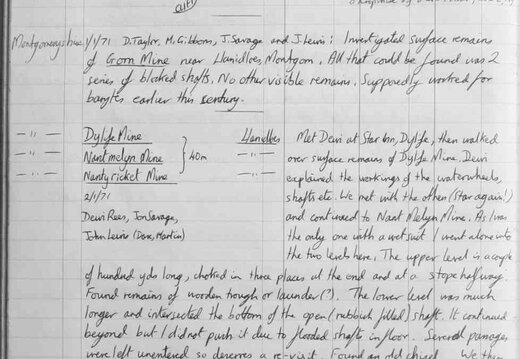 Montgomeryshire 1/1/71 D. Taylor, M. Gibbons, J. Savage and J. Lewis: Investigated surface remains
of Gorn Mine near Llanidloes, Montgom. All that could be found was 2
series of blocked shafts. No other visible remains. Supposedly worked for
barytes earlier this century.
— " — Dylife Mine Llanidloes Met Dewi at Star Inn, Dylife, then walked
— " — Nantmelyn Mine 40m — " — over surface remains of Dylife Mine. Dewi
— " — Nantyricket Mine — " — explained the workings of the waterwheels,
2/1/71 shafts etc. We met with the others (Star again!)
Dewi Rees, Jon Savage, and continued to Nant Melyn Mine. As I was
John Lewis (Dave, Martin) the only one with a wet suit I went alone into
the two levels here. The upper level is a couple
of hundred yds long, choked in three places at the end and at a stope halfway.
Found remains of wooden trough or launder(?). The lower level was much
longer and intersected the bottom of the open (rubbish filled) shaft. It continued
beyond but I did not push it due to flooded shafts in floor. Several passages
were left unentered so deserves a re-visit. Found an old We then